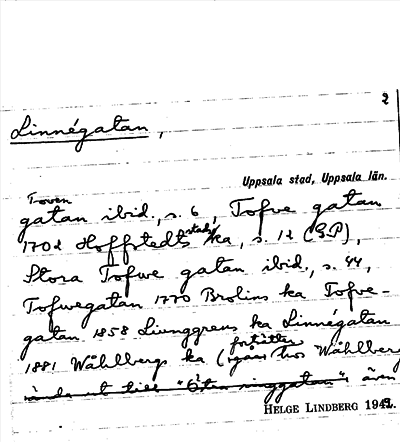 2
Linnégatan,
Uppsala stad, Uppsala län.
Toven
gatan ibid., s. 6, Tofve gatan
1702 Hoffstedts stads ka, s. 12 (G.P),
Stora Tofwe gatan ibid., s. 44,
Tofwegatan 1770 Brolins ka Tofve-
gatan 1858 Ljunggrens ka Linnégatan
1881 Wåhlbergs ka ( hos Wåhlberg
ända ut till "Östra ringgatan"; även
HELGE LINDBERG 1942.